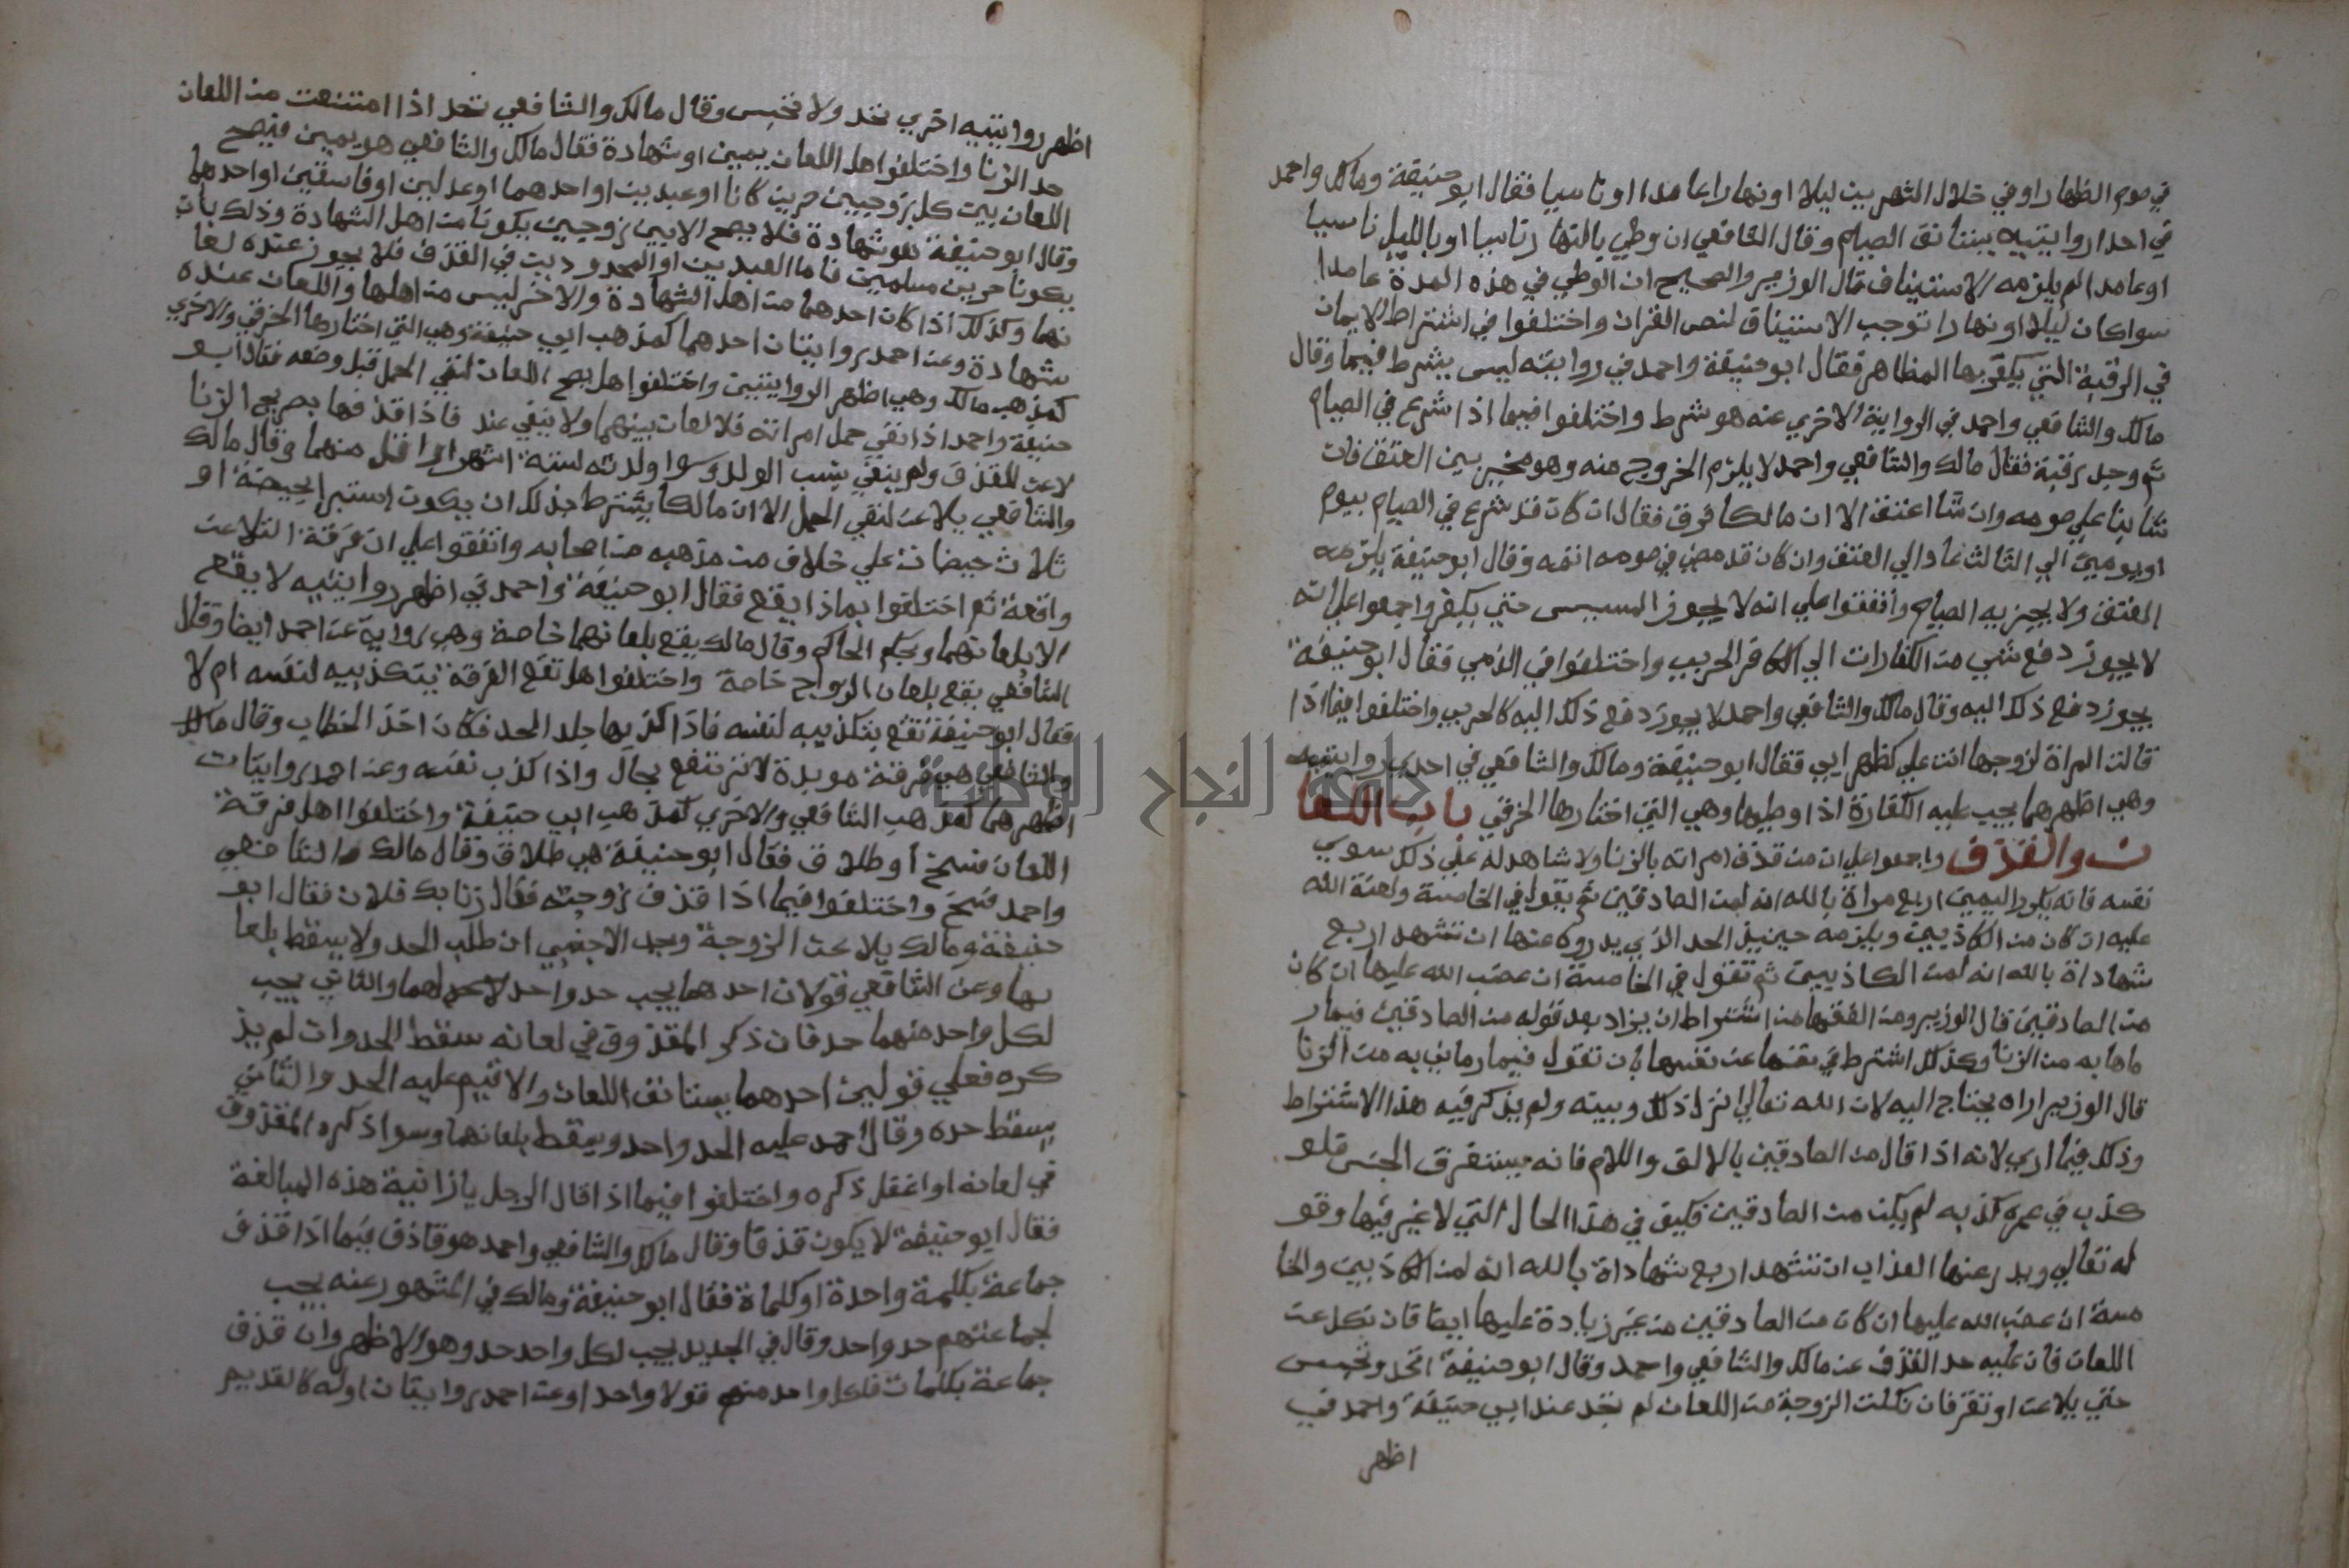 في صوم الظهار او في خلال الشهرين ليلا او نهارا عامدا او ناسيا فقال ابو حنيفة ومالك واحمد
في احدا روايتيه يستانف الصيام وقال الشافعي ان وطي بالنهار ناسيا او بالليل ناسيا
او عامدا لم يلزمه الاستيناف قال الوزير والصحيح ان الوطي في هذه المدة عامدا
سوا كان ليلا او نهارا توجب الاستيناق لنص القران واختلفوا في اشتراط الايمان
في الرقبة التي يكفر بها المظاهر فقال ابو حنيفة واحمد في روايته ليس بشرط فيهما وقال
مالك والشافعي واحمد في الرواية الاخري عنه هو شرط واختلفوا فيما اذا شرع في الصيام
ثم وجد رقبة فقال مالك والشافعي واحمد لا يلزم الخروج منه وهو مخير بين العتق فان
شا بنا علي صومه وان شا اعتق الا ان مالكا فرق فقال ان كان قد شرع في الصيام بيوم
او يومين الي الثالث عاد الي العتق وان كان قد مضي في صومه اتمه وقال ابو حنيفة يلزمه
العتق ولا يجزيه الصيام واتفقوا علي انه لا يجوز المسيس حتي يكفر واجمعوا علي انه
لا يجوز دفع شي من الكفارات الي الكافر الحربي واختلفوا في الذمي فقال ابو حنيفة
يجوز دفع ذلك اليه وقال مالك والشافعي واحمد لا يجوز دفع ذلك اليه كالحربي واختلفوا فيما اذا
قالت المراة لزوجها انت علي كظهر ابي فقال ابو حنيفة ومالك والشافعي في احدي روايتيه
وهي اظهرهما يجب عليه الكفارة اذا وطيها وهي التي اختارها الخرقي باب اللعا
ن والقذف واجمعوا علي ان من قذف امراته بالزنا ولا شاهد له علي ذلك سوي
نفسه فانه يكرر اليمين اربع مراة بالله انه لمن الصادقين ثم يقول في الخامسة ولعنة الله
عليه ان كان من الكاذبين ويلزمه حينيذ الحد الذي يدروه عنها ان تشهد اربع
شهاداة بالله انه لمن الكاذبين ثم تقول في الخامسة ان غضب الله عليها ان كان
من الصادقين قال الوزير ومن الفقها من اشتراط ان يزاد بعد قوله من الصادقين فيما ر
ماها به من الزنا وكذلك اشترط في نفيها عن نفسها بان تقول فيما رماني به من الزنا
قال الوزير اراه يحتاج اليه لان الله تعالي انزل ذلك وبينه ولم يذكر فيه هذا الاشتراط
وذلك فيما اري لانه اذا قال من الصادقين بالالف واللام فانه يستغرق الجنس فلو
كذب في عمره كذبه لم يكن من الصادقين فكيف في هذا الحال التي لا غير فيها وقو
له تعالي ويدر عنها العذاب ان تشهد اربع شهاداة بالله انه لمن الكاذبين والخا
مسة ان غضب الله عليها ان كان من الصادقين من غير زيادة عليها ايضا فان نكل عن
اللعان فان عليه حد القذف عند مالك والشافعي واحمد وقال ابو حنيفة تحد وتحبس
حتي يلاعن او تقر فان نكلت الزوجة من اللعان لم تحد عند ابي حنيفة واحمد في
اظهر
اظهر روايتيه اخري تحد ولا تحبس وقال مالك والشافعي تحد اذا امتنعت من اللعان
حد الزنا واختلفوا هل اللعان يمين او شهادة فقال مالك والشافعي هو يمين فيصح
اللعان بين كل زوجيين حرين كانا او عبدين او احدهما او عدلين او فاسقين او احدهما
وقال ابو حنيفة هو شهادة فلا يصح الا بين زوجين يكونا من اهل الشهادة وذلك بان
يكونا حرين مسلمين فاما العبدين او المحدودين في القذف فلا يجوز عنده لعا
نهما وكذلك اذا كان احدهما من اهل الشهادة والاخر ليس من اهلها واللعان عنده
شهادة وعن احمد روايتان احدهما كمذهب ابي حنيفة وهي التي اختارها الخرقي والاخري
كمذهب مالك وهي اظهر الروايتين واختلفوا هل يصح اللعان لنفي الحمل قبل وضعه فقال ابو
حنيفة واحمد اذا نفي حمل امراته فلا لعان بينهما ولا ينفي عند فاذا قذفها بصريح الزنا
لاعن للقذف ولم ينفي نسب الولد وسوا ولدته لستة اشهر او اقل منهما وقال مالك
والشافعي يلاعن لنفي الحمل الا ان مالكا يشترط بذلك ان يكون استبرا بحيضة او
ثلاث حيضات علي خلاف من مذهبه من اصحابه واتفقوا علي ان فرقة التلاعن
واقعة ثم اختلفوا بماذا يقع فقال ابو حنيفة واحمد في اظهر روايتيه لا يقع
الا بلعانهما وبحكم الحاكم وقال مالك يقع بلعانهما خاصة وهي رواية عن احمد ايضا وقال
الشافعي يقع بلعان الزواج خاصة واختلفوا هل تقع الفرقة بتكذيبه لنفسه ام لا
فقال ابو حنيفة تقع بتكذيبه لنفسه فاذا اكذبها جلد الحد فكان احد الخطاب وقال مالك
والشافعي هي فرقة موبدة لا ترتفع بحال واذا كذب نفسه وعن احمد روايتان
اظهرهما كمذهب الشافعي والاخري كمذهب ابي حنيفة واختلفوا اهل فرقة
اللعان فسخ او طلاق فقال ابو حنيفة هي طلاق وقال مالك والشافعي
واحمد فسخ واختلفوا فيما اذا قذف زوجته فقال زنا بك فلان فقال ابو
حنيفة ومالك يلاعن الزوجة ويحد الاجنبي ان طلب الحد ولا يسقط بلعا
نها وعن الشافعي قولان احدهما يجب حد واحد لهما والثاني يجب
لكل واحد منهما حد فان ذكر المقذوف في لعانه سقط الحد وان لم يذ
كره فعلي قولين احدهما يستانف اللعان والا اقيم عليه الحد والثاني
يسقط حده وقال احمد عليه الحد واحد ويسقط بلعانهما وسوا ذكره المقذوف
في لعانه او اغفل ذكره واختلفوا فيما اذا قال الرجل يا زانية هذه المبالغة
فقال ابو حنيفة لا يكون قذفا وقال مالك والشافعي واحمد هو قاذف فيما اذا قذف
جماعة بكلمة واحدة او كلماة فقال ابو حنيفة ومالك في المشهور عنه يجب
لجماعتهم حد واحد وقال في الجديد يجب لكل واحد حد وهو الاظهر وان قذف
جماعة بكلمات فلكل واحد منهم قولا واحدا وعن احمد روايتان اوله كالقديم
جامعة النجاح الوطنية